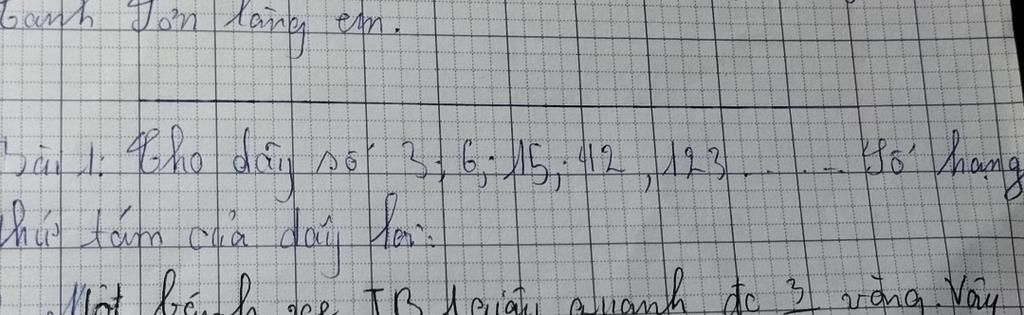 Bài 1. Cho dãy số 3; 6; 15; 42, 123....... Số hạng
thứ tám của dãy là:
Một bánh xe TB 1 giây quanh đc 3 vòng. Vậy